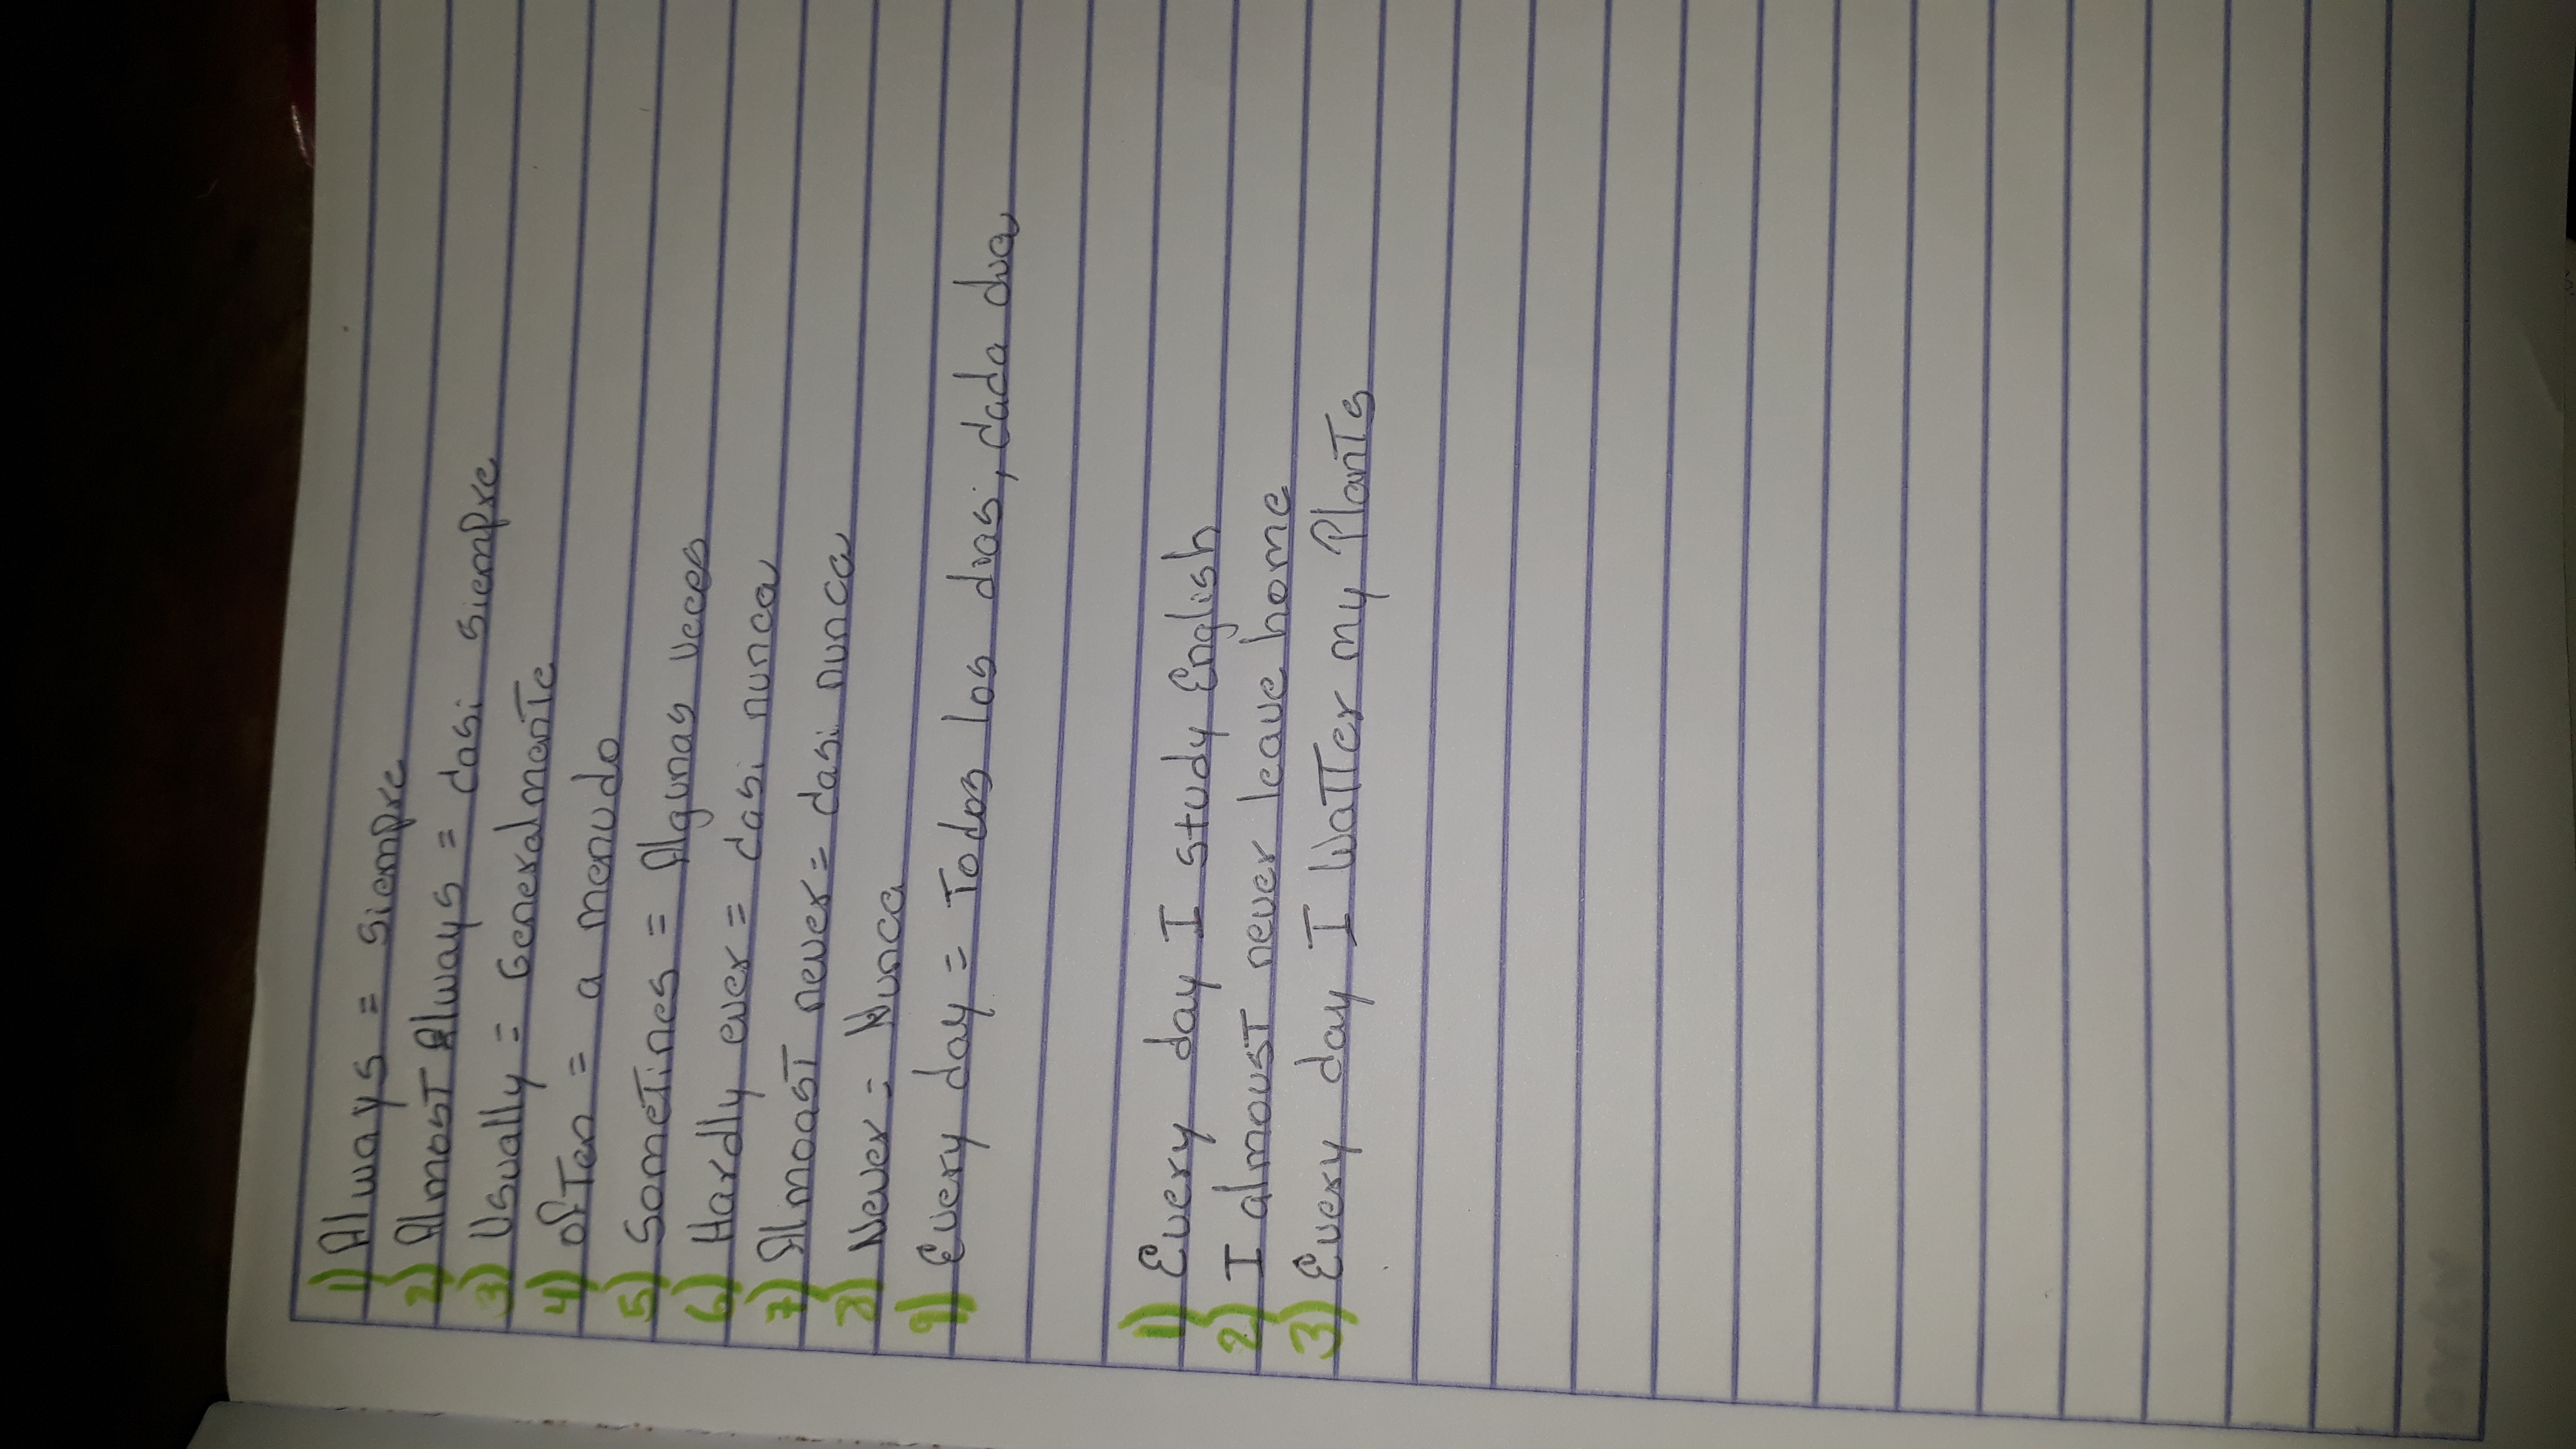 1) Always = siempre
2) Almost Always = casi siempre
3) Usually = Generalmente
4) ofTen = a menudo
5) SomeTines = Algunas veces
6) Hardly ever = casi nunca
7) Almoast never = casi nunca
8) Never = Nunca
9) Every day = Todos los dias, cada dia
1) Every day I study English
2) I almoust never leave home
3) Every day I WaTTer my PlanTs